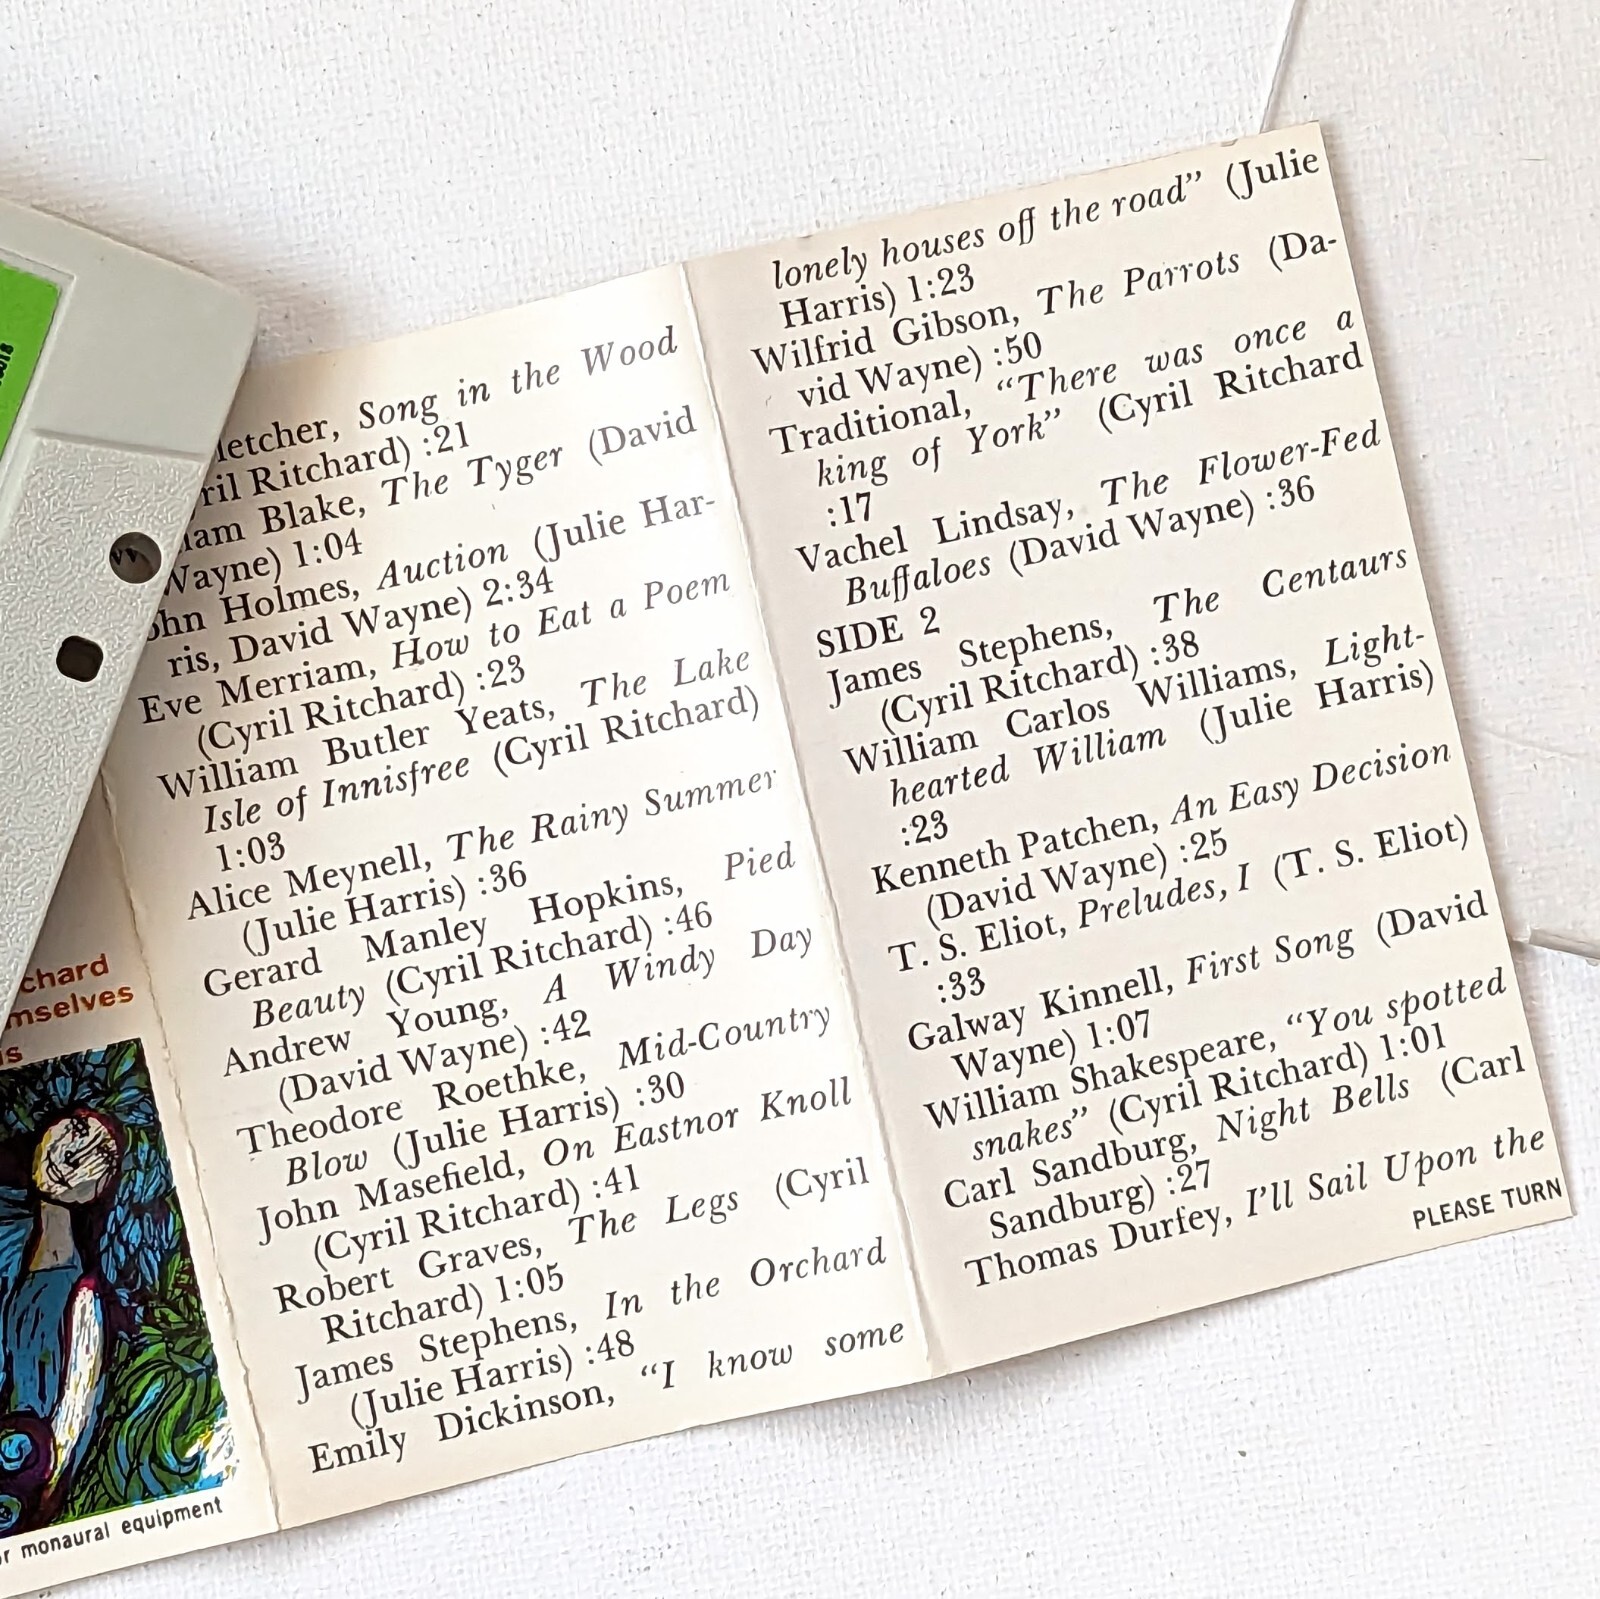 Song in the Wood
Ritchard) :21
Blake, The Tyger (David
Wayne) 1:04
Holmes, Auction (Julie Har-
ris, David Wayne) 2:34
Eve Merriam, How to Eat a Poem
(Cyril Ritchard) :23
William Butler Yeats, The Lake
Isle of Innisfree (Cyril Ritchard)
1:03
Alice Meynell, The Rainy Summer
(Julie Harris) :36
Gerard Manley Hopkins, Pied
Beauty (Cyril Ritchard) :46
Andrew Young, A Windy Day
(David Wayne) :42
Theodore Roethke, Mid-Country
Blow (Julie Harris) :30
John Masefield, On Eastnor Knoll
(Cyril Ritchard) :41
Robert Graves, The Legs (Cyril
Ritchard) 1:05
James Stephens, In the Orchard
(Julie Harris) :48
Emily Dickinson, “I know some
lonely houses off the road” (Julie
Harris) 1:23
Wilfrid Gibson, The Parrots (Da-
vid Wayne) :50
Traditional, “There was once a
king of York” (Cyril Ritchard
:17
Vachel Lindsay, The Flower-Fed
Buffaloes (David Wayne) :36
SIDE 2
James Stephens, The Centaurs
(Cyril Ritchard) :38
William Carlos Williams, Light-
hearted William (Julie Harris)
:23
Kenneth Patchen, An Easy Decision
(David Wayne) :25
T. S. Eliot, Preludes, I (T. S. Eliot)
:33
Galway Kinnell, First Song (David
Wayne) 1:07
William Shakespeare, “You spotted
snakes” (Cyril Ritchard) 1:01
Carl Sandburg, Night Bells (Carl
Sandburg) :27
Thomas Durfey, I'll Sail Upon the
PLEASE TURN
chard
mselves
monaural equipment